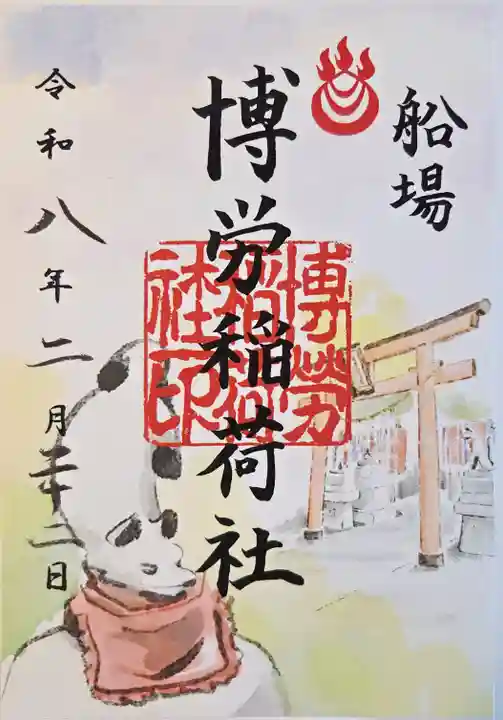 船場
博労稲荷社
博勞
稲荷
社印
令和八年二月二十二日